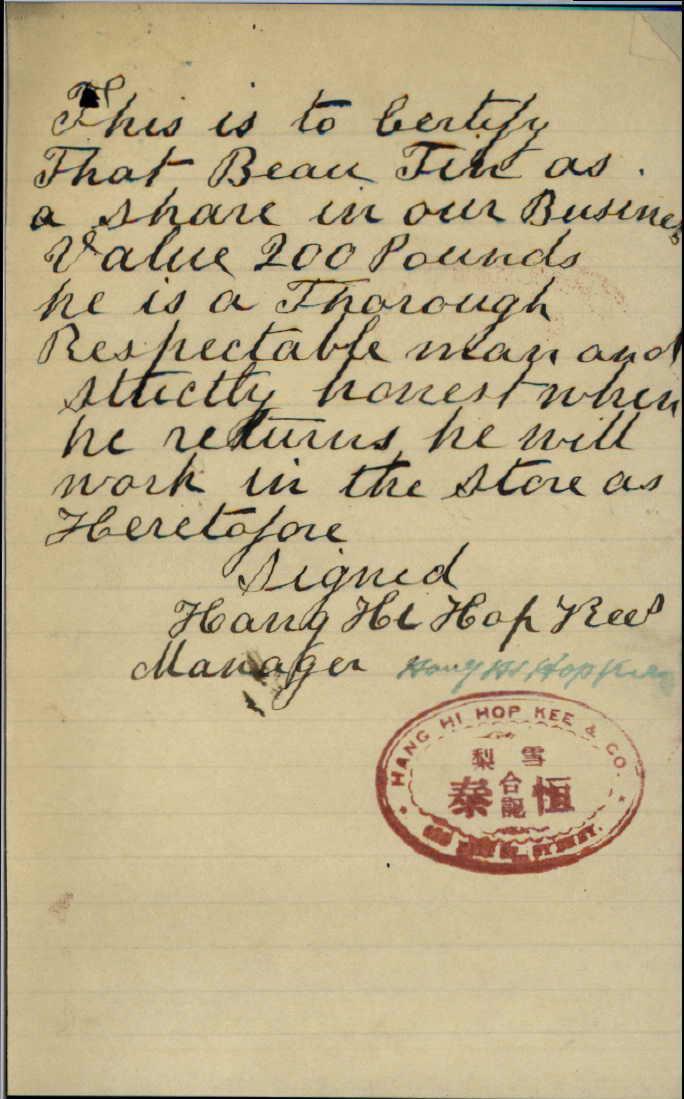 This is to Certify
That Beau Tin as
a share in our Business
Value 200 Pounds
he is a Thorough
Respectable man and
strictly honest when
he returns he will
work in the store as
Heretofore
Signed
Hang Hi Hop Kee
Manager Hang Hi Hop Kee
HANG HI HOP KEE & CO.
梨 雪
泰 合 恒
SYDNEY.